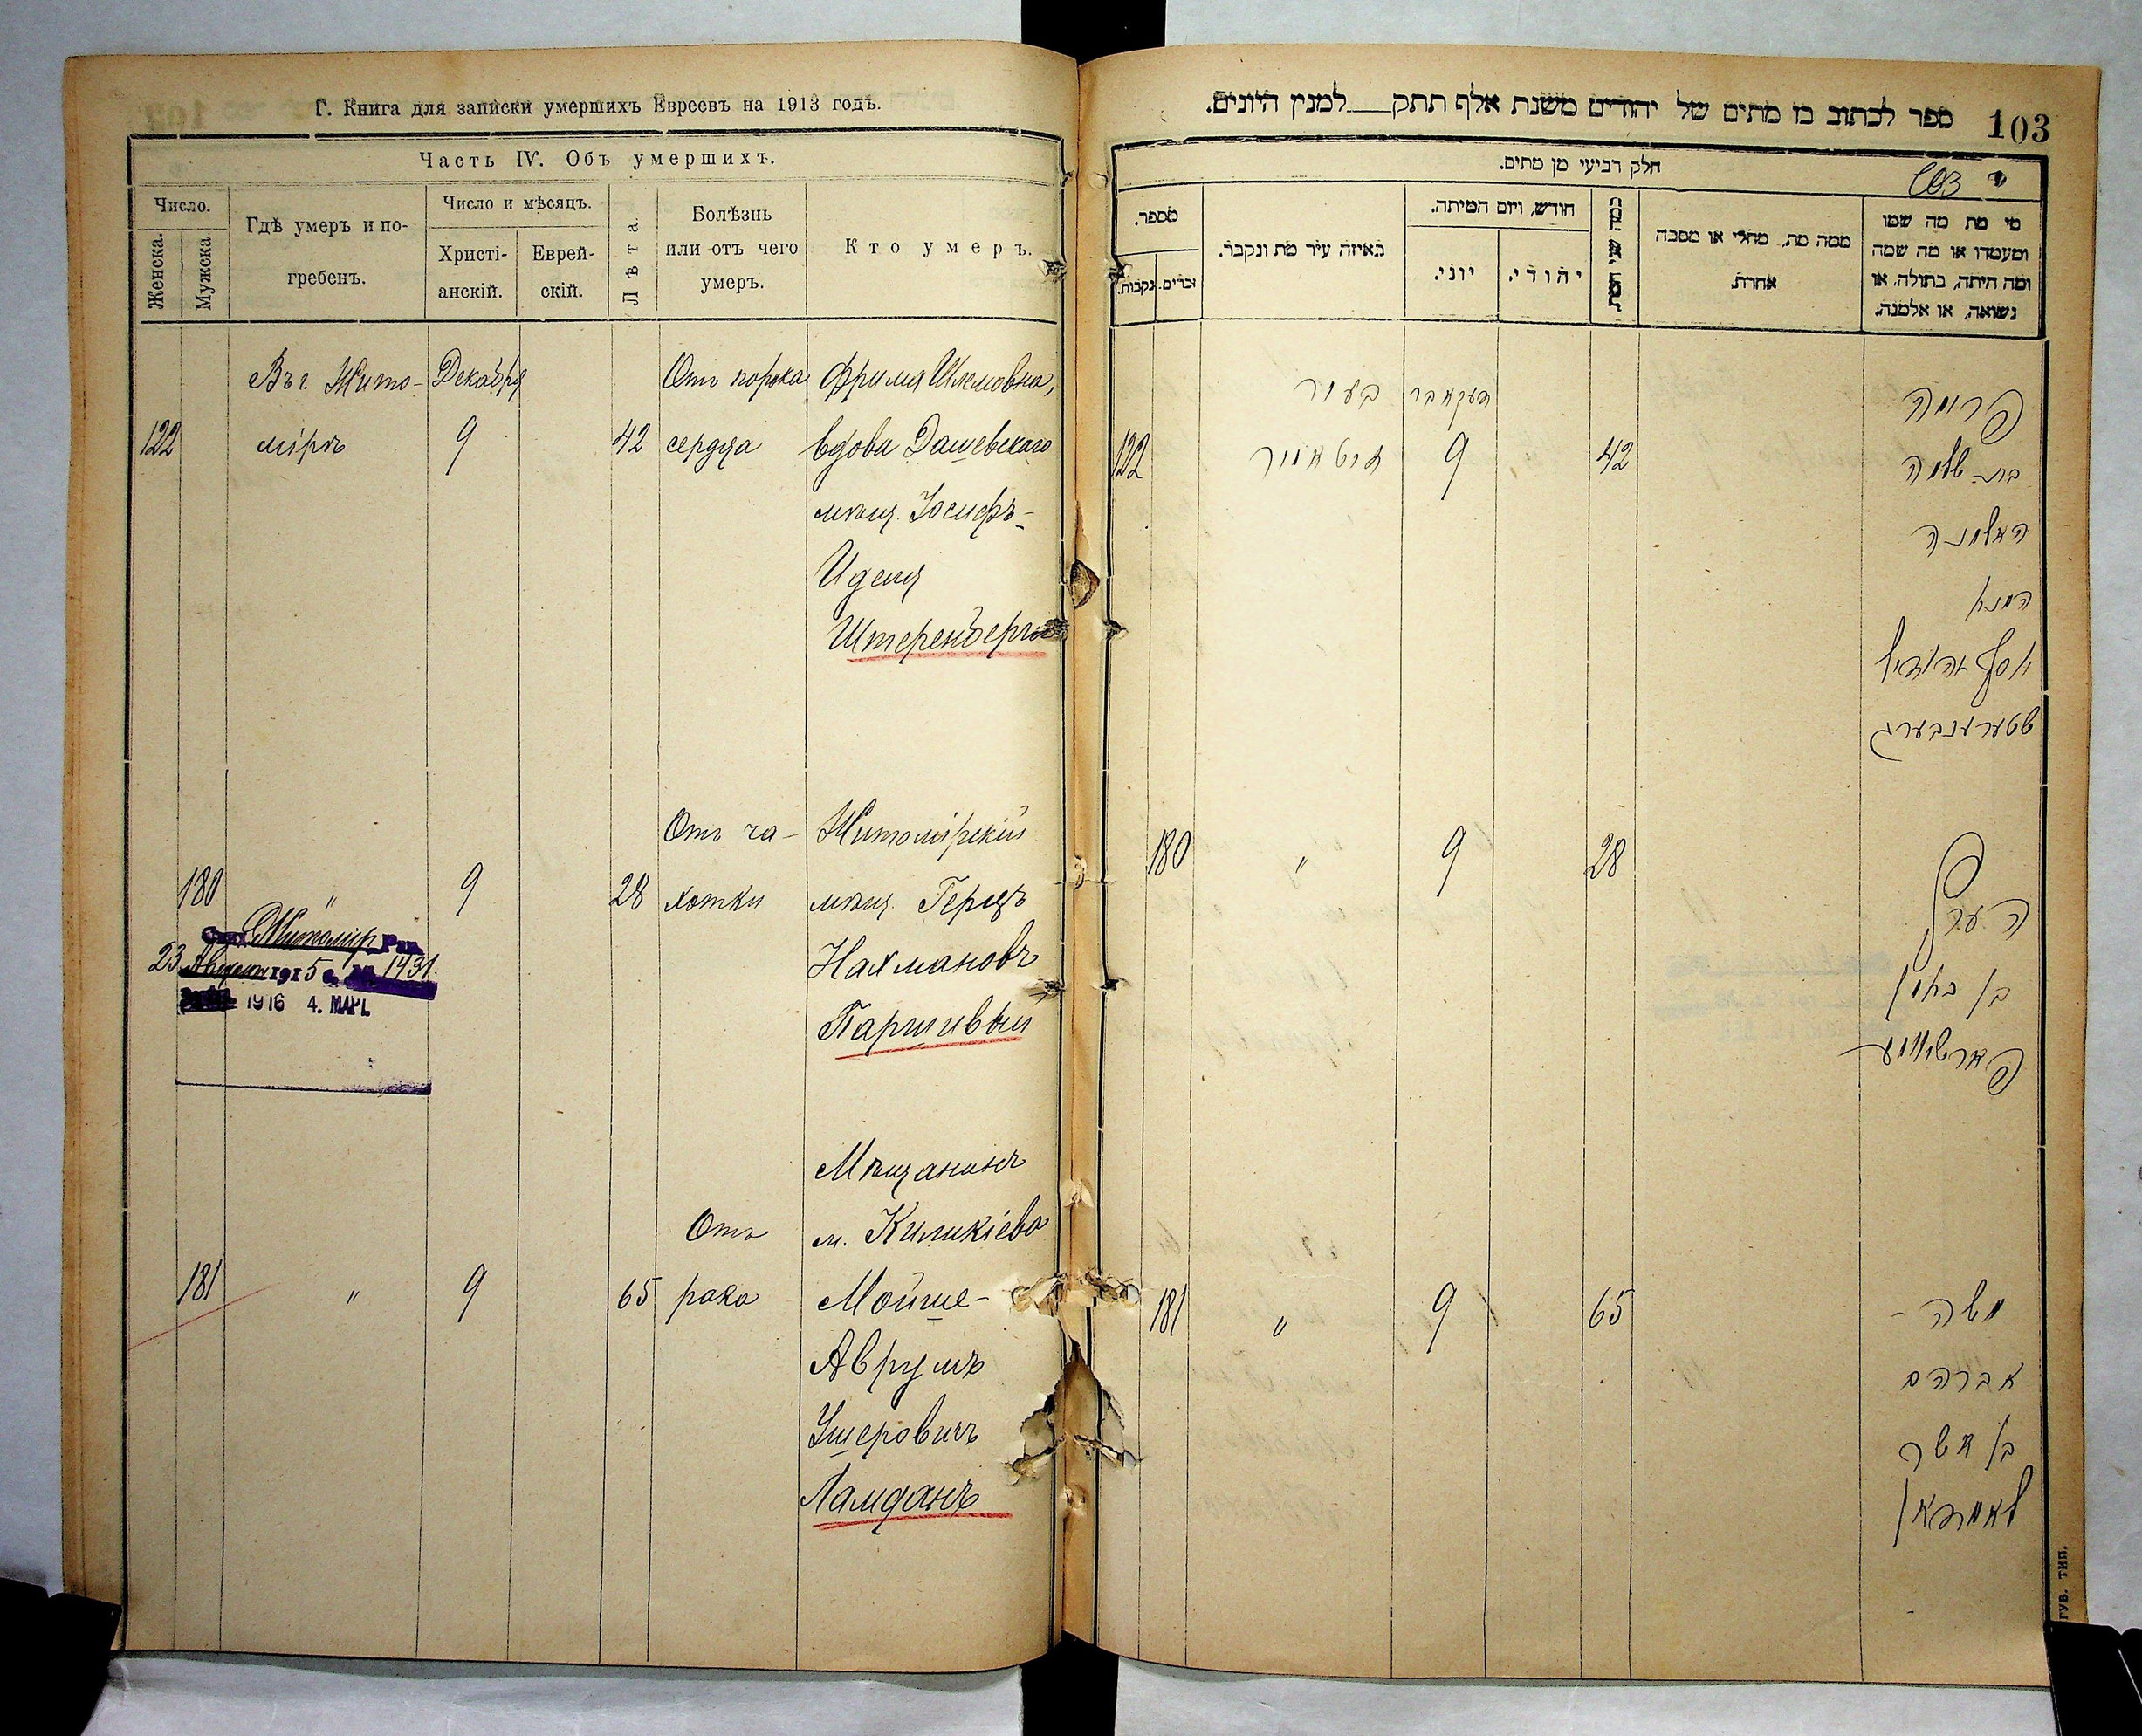 Г. Книга для записки умершихъ Евреевъ на 1913 годъ.
Часть IV. Объ умершихъ.
Число.
Женска.
Мужска.
Гдѣ умеръ и по-
гребенъ.
Число и мѣсяцъ.
Христі-
анскій.
Еврей-
скій.
Лѣта.
Болѣзнь
или отъ чего
умеръ.
Кто умеръ.
Въ г. Жито- Декабря Отъ порока Фрима Шлемовна,
122 мірѣ 9 42 сердца вдова Дашевскаго
мѣщ. Іосифъ-
Иделя
Штеренберга
Отъ ча- Житомірскій
180 " 9 28 хотки мѣщ. Герцъ
Нахмановъ
Паршивый
Житомір Рав.
23 Августа 1915 г. № 1431
1916 4. МАРТ.
Мѣщанинъ
Отъ м. Киликіева
181 " 9 65 рака Мойше-
Аврумъ
Ушеровичъ
Ламданъ
ספר לכתוב בו מתים של יהודים משנת אלף תתק למנין היונים.
103
חלק רביעי מן מתים.
103
מספר.
נקבות.
זכרים.
באיזה עיר מת ונקבר.
חודש, ויום המיתה.
יוני.
יהודי.
כמה שני המת
ממה מת, מחלי או מסבה
אחרת.
מי מת מה שמו
ומעמדו או מה שמה
ומה היתה, בתולה, או
נשואה, או אלמנה.
פרימה
דעקאבר
בעיר
בת שלמה
42
9
זיטאמיר
122
האלמנה
יוסף יהודה
שטערענבערג
180 " 9 28
הערץ
בן נחמן
פארשיווע
181 " 9 65
משה -
אברהם
בן אשר
לאמדאן
ГУБ. ТИП.